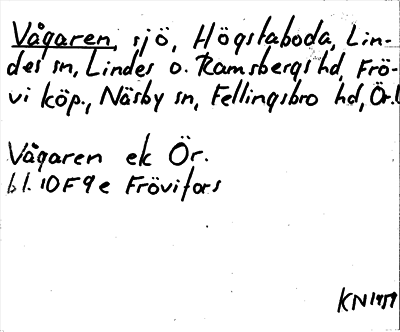 Vågaren, sjö, Högstaboda, Lin-
des sn, Lindes o. Ramsbergs hd, Frö-
vi köp., Näsby sn, Fellingsbro hd, Ör.l
Vågaren ek Ör.
bl. 10F9e Frövifors
KN